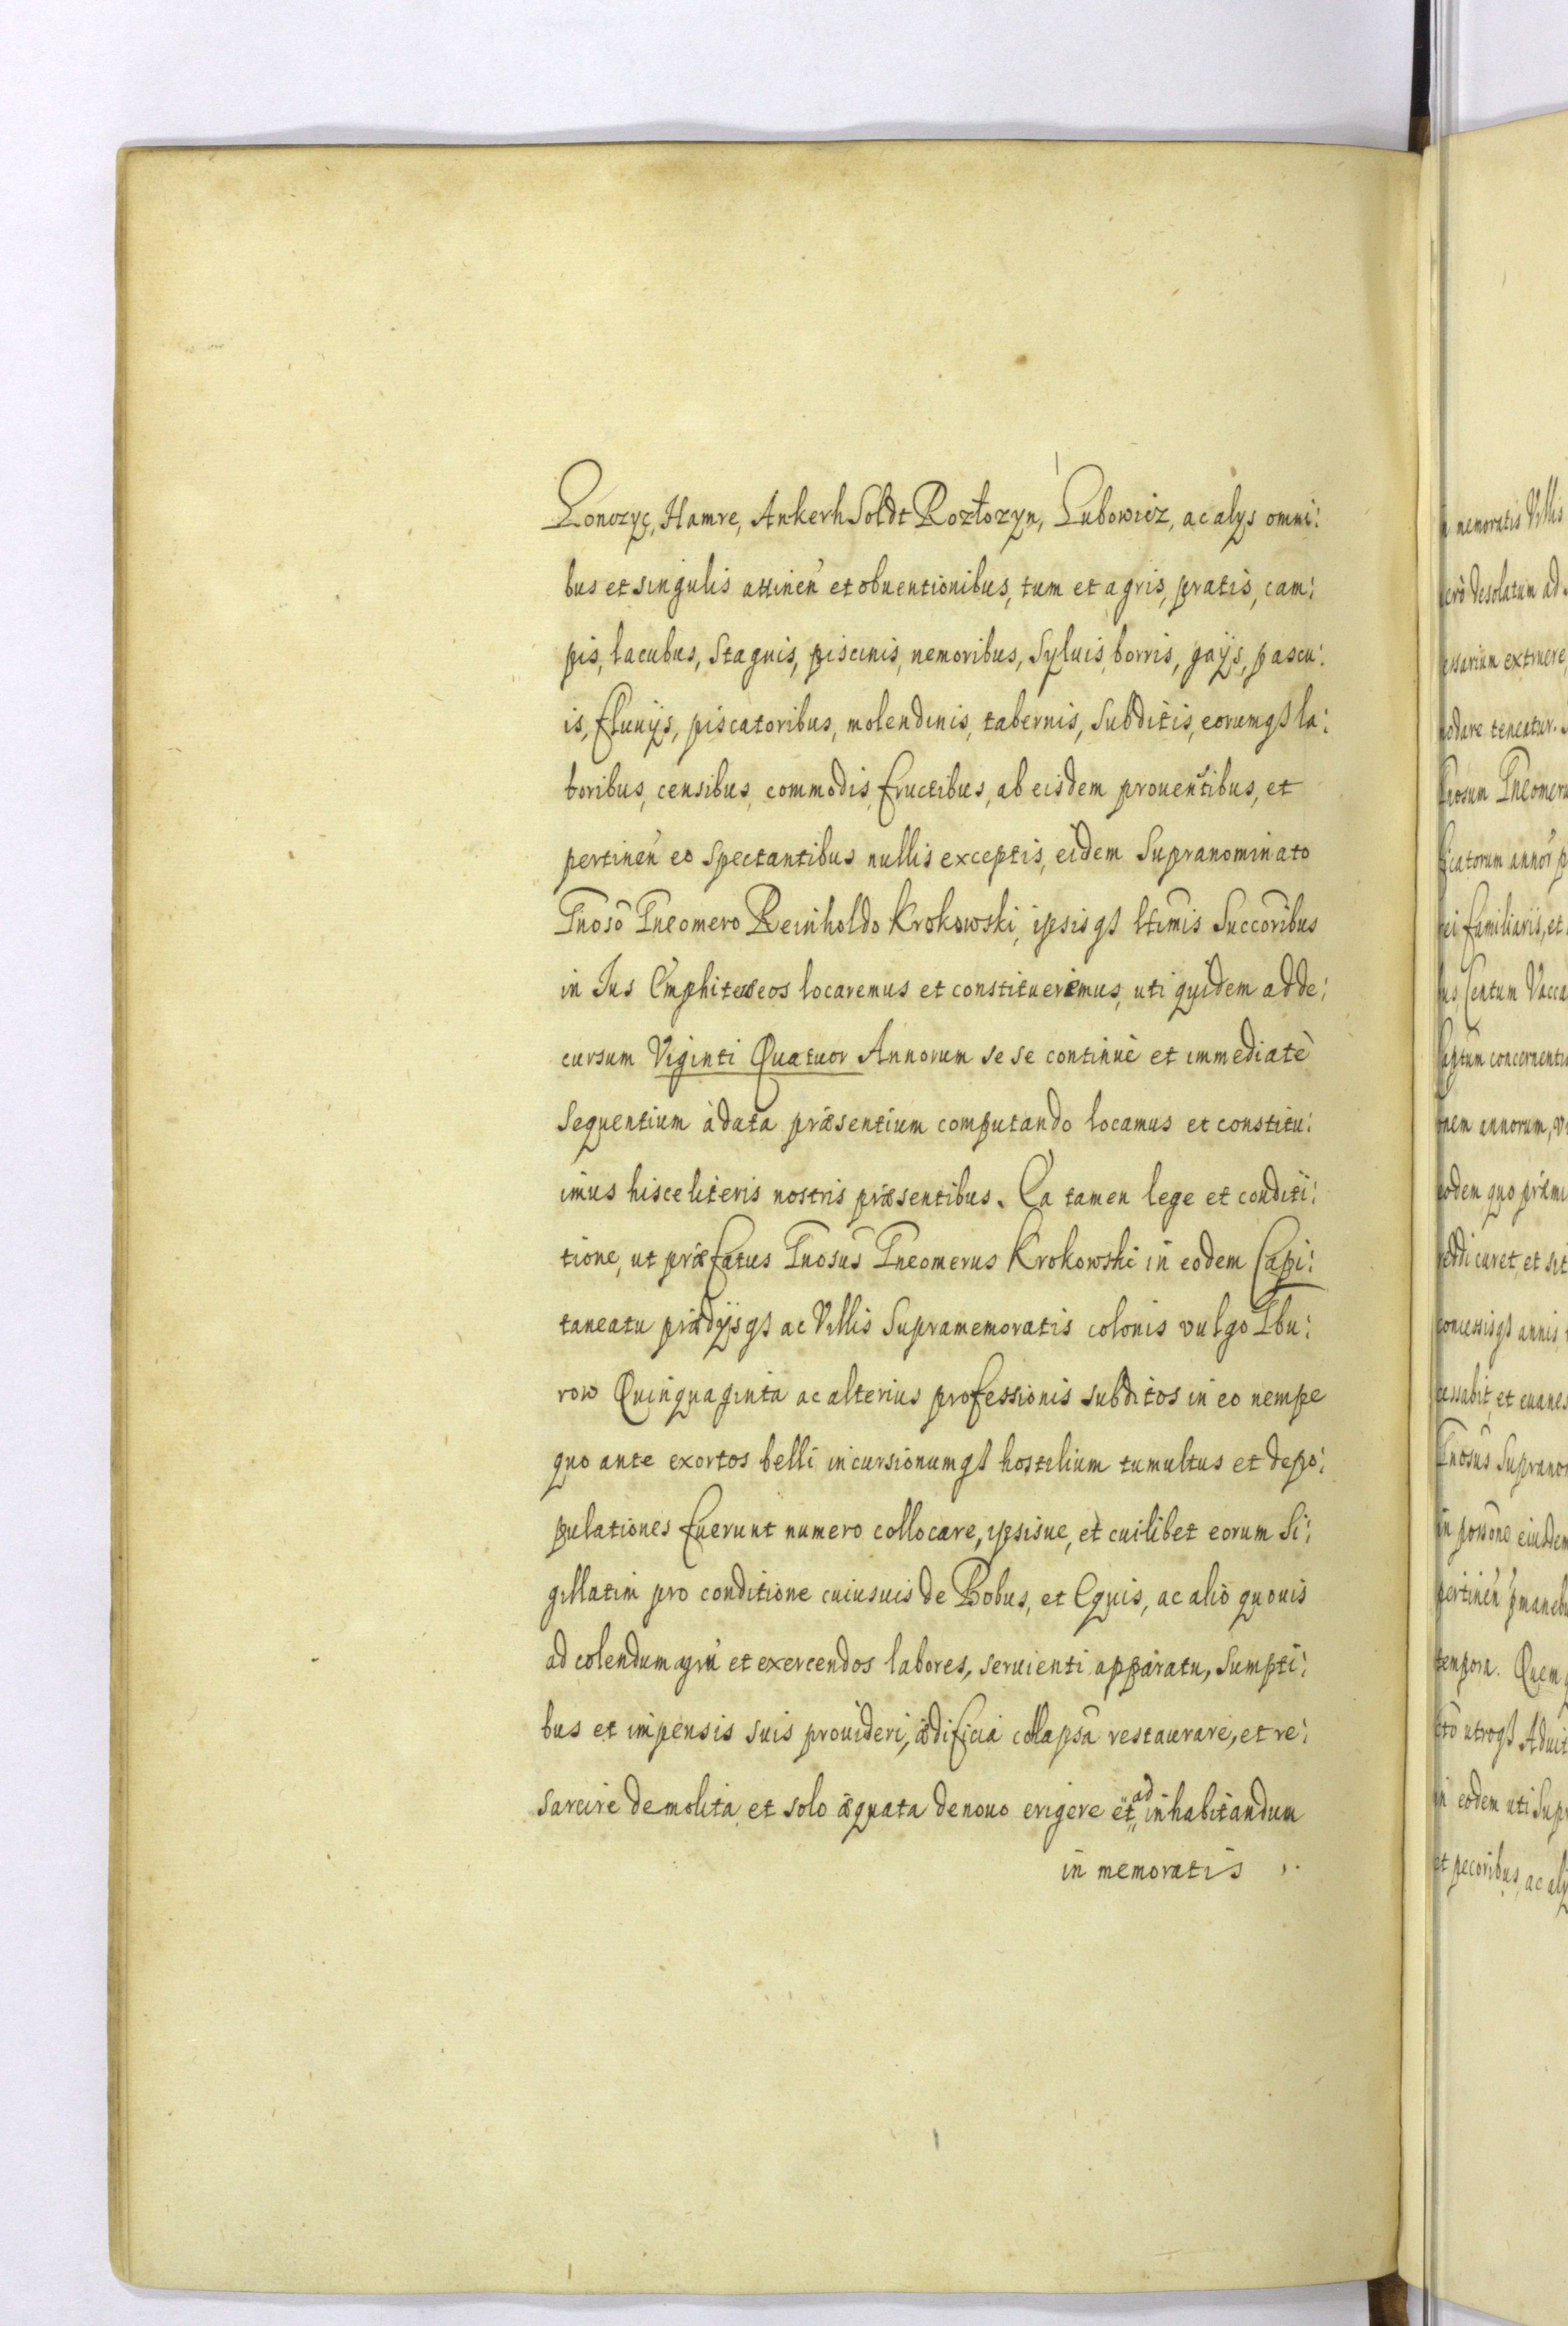 Lonozyc, Hamre, Ankerh Soldt Rozłozyn, Lubowicz, ac alys omni:
bus et singulis attinen̄ et obuentionibus, tum et agris, pratis, cam:
pis, lacubus, Stagnis, piscinis, nemoribus, Syluis, borris, gaijs, pascu:
is, fluuijs, piscatoribus, molendinis, tabernis, Subditis, eorumqȝ la:
boribus, censibus, commodis, fructibus, ab eisdem prouentibus, et
pertinen̄ eo Spectantibus nullis exceptis, eidem Supranominato
Gnoso Gneomero Reinholdo Krokowski, ipsisqȝ ltimis Succoribus
in Jus Emphiteuseos locaremus et constitueremus, uti quidem ad de:
cursum Viginti Quatuor Annorum se se continuè et immediatè
Sequentium à data præsentium computando locamus et constitu:
imus hisce literis nostris præsentibus. Ea tamen lege et conditi:
tione, ut præfatus Gnosus Gneomerus Krokowski in eodem Capi:
taneatu prædijsqȝ ac Villis Supramemoratis colonis vulgo Gbu:
row Quinquaginta ac alterius professionis subditos in eo nempe
quo ante exortos belli incursionumqȝ hostilium tumultus et depo:
pulationes fuerunt numero collocare, ipsisue, et cuilibet eorum Si:
gillatim pro conditione cuiusuis de Bobus, et Equis, ac alio quouis
ad colendum agrū et exercendos labores, seruienti apparatu, Sumpti:
bus et impensis suis prouideri, ædificia collapsa restaurare, et re:
sarcire demolita et solo æquata denouo erigere et ad inhabitandum
in memoratis
in memoratis Villis
desolatum ad
extruere
teneatur.
Gneomeru
annor
familiarij, et
Centum Vacca
concernenti
annorum,
eodem quo præmi
caret, et sit
annis
et euanes
Gnosus Supranom
eiusdem
pertinen̄ pmaneb
tempora. Quem
utroqȝ Aduit
in eodem uti Supr
et pecoribus, ac aly